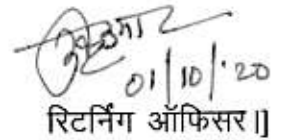 01/10/20
रिटर्निंग ऑफिसर।]